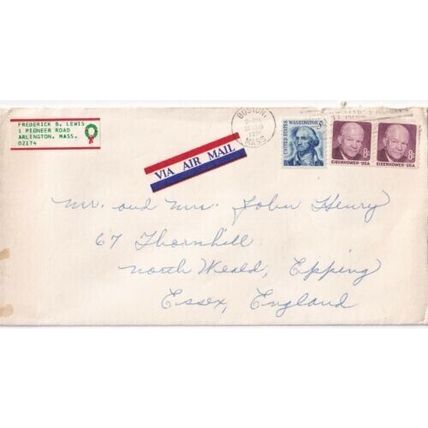 FREDERICK B. LEWIS
1 PIONEER ROAD
ARLINGTON, MASS.
02174
BOSTON
MASS.
UNITED STATES
WASHINGTON
5¢
8¢
EISENHOWER·USA
8¢
EISENHOWER·USA
VIA AIR MAIL
Mr. and Mrs. John Henry
67 Thornhill
North Weald, Epping
Essex, England